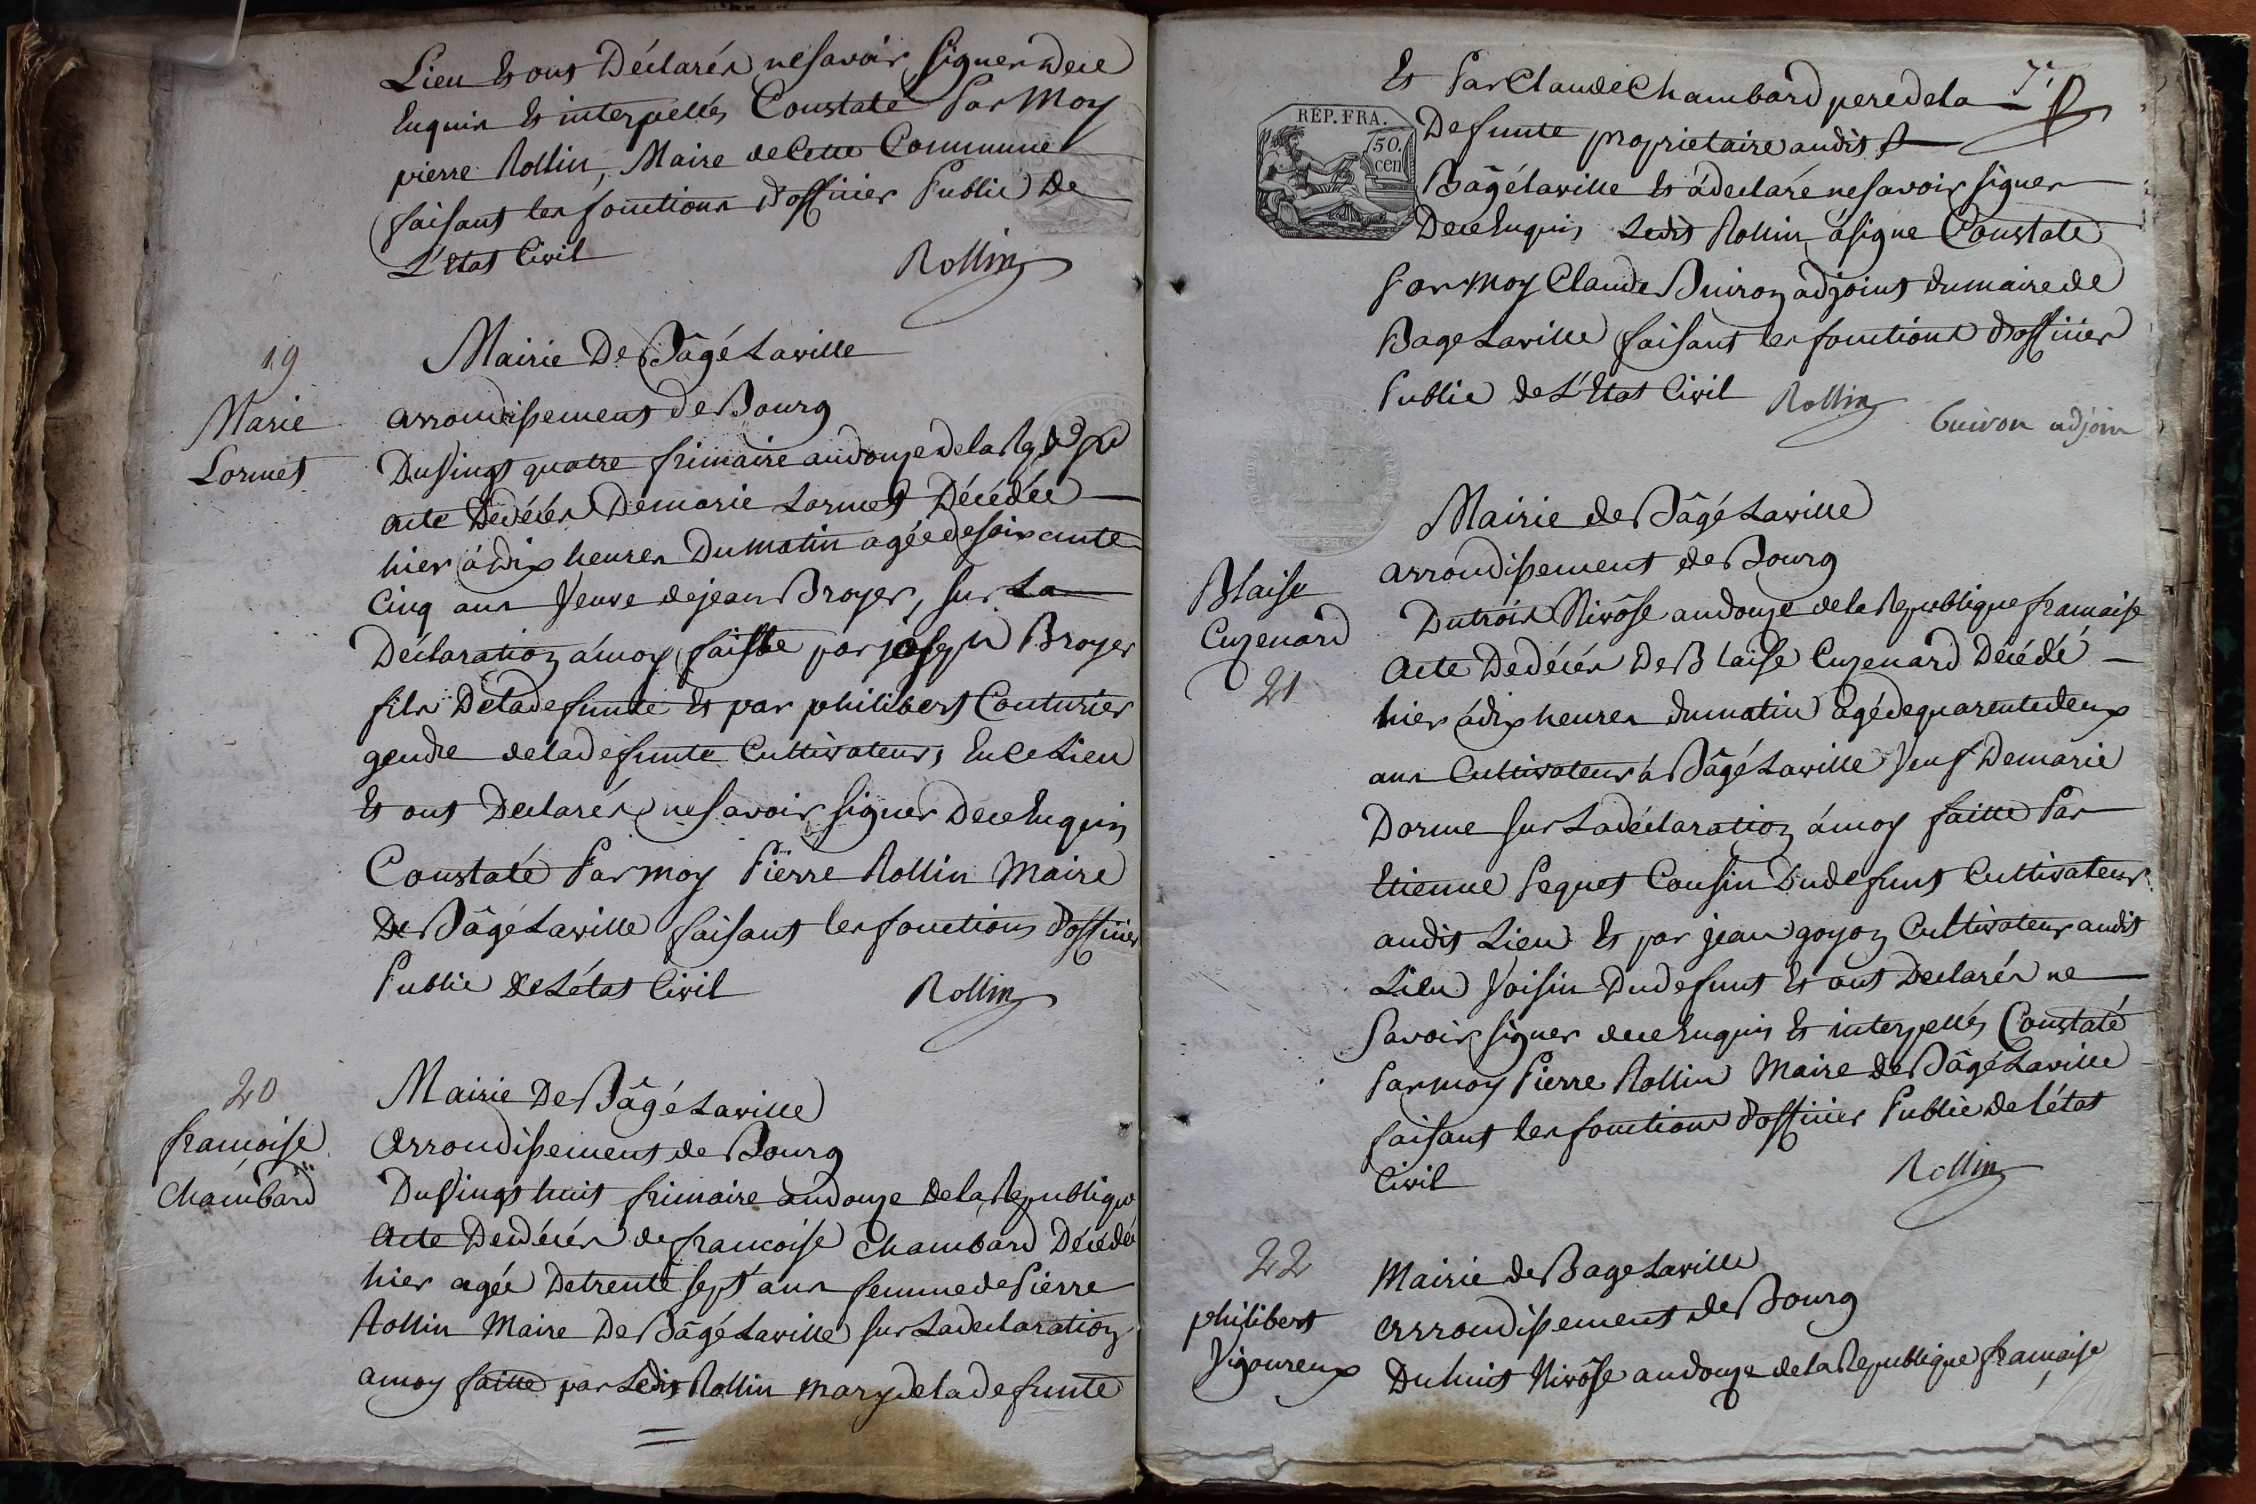 Lieu Et ont Déclarés ne savoir signer de ce
Enquis Et interpellés Constaté Par Moy
pierre Rollin, Maire de Cette Commune
faisant les fonctions d'officier Public De
L'Etat Civil
Rollin
19
Marie
Lormet
Mairie De Bâgé Laville
arrondissement de Bourg
Du Vingt quatre frimaire an douze de la
acte De décés De marie Lormet Décédée
hier à dix heures Du matin agée de soixante
Cinq ans Veuve de jean Broyer, sur La
Déclaration à moy faitte par joseph Broyer
fils De la defunte Et par philibert Couturier
gendre de la defunte Cultivateurs, En ce Lieu
Et ont Declarés ne savoir signer De ce Enquis
Constaté Par moy Pierre Rollin Maire
De Bâgé Laville faisant les fonctions d'officier
Public de L'état Civil
Rollin
20
francoise
Chambard
Mairie De Bâgé Laville
Arrondissement de Bourg
Du Vingt huit frimaire an douze De la Republique
Acte De décés de francoise Chambard Décédée
hier agée De trente sept ans femme de Pierre
Rollin Maire De Bâgé Laville sur La declaration
a moy faitte par Ledit Rollin mary de la defunte
Et Par Claude Chambard pere de la
REP. FRA.
50.
cen
Defunte proprietaire audit
Bâgé Laville Et à declaré ne savoir signer
De ce Enquis Ledit Rollin à signe Constaté
Par Moy Claude Buiron adjoint du maire de
Bage Laville faisant les fonctions d'officier
Public de L'Etat Civil
Rollin
buiron adjoin
Blaise
Cuzenard
21
Mairie de Bâgé Laville
arrondissement de Bourg
Du trois Nivôse an douze de la Republique francaise
Acte De décés De Blaise Cuzenard Decédé
hier à dix heures du matin Agé de quarente deux
ans Cultivateur à Bâgé Laville Veuf De marie
Dorme sur La déclaration à moy faitte Par
Etienne Pequet Cousin Du defunt Cultivateur
audit Lieu Et par jean goyon Cultivateur audit
Lieu Voisin Du defunt Et ont Declarés ne
Savoir signer de ce Enquis Et interpellés Constaté
Par moy Pierre Rollin Maire de Bâgé Laville
faisant les fonctions d'officier Public de l'état
Civil
Rollin
22
philibert
Vigoureux
Mairie de Bage Laville
Arrondissement de Bourg
Du huit Nivôse an douze de la Republique française